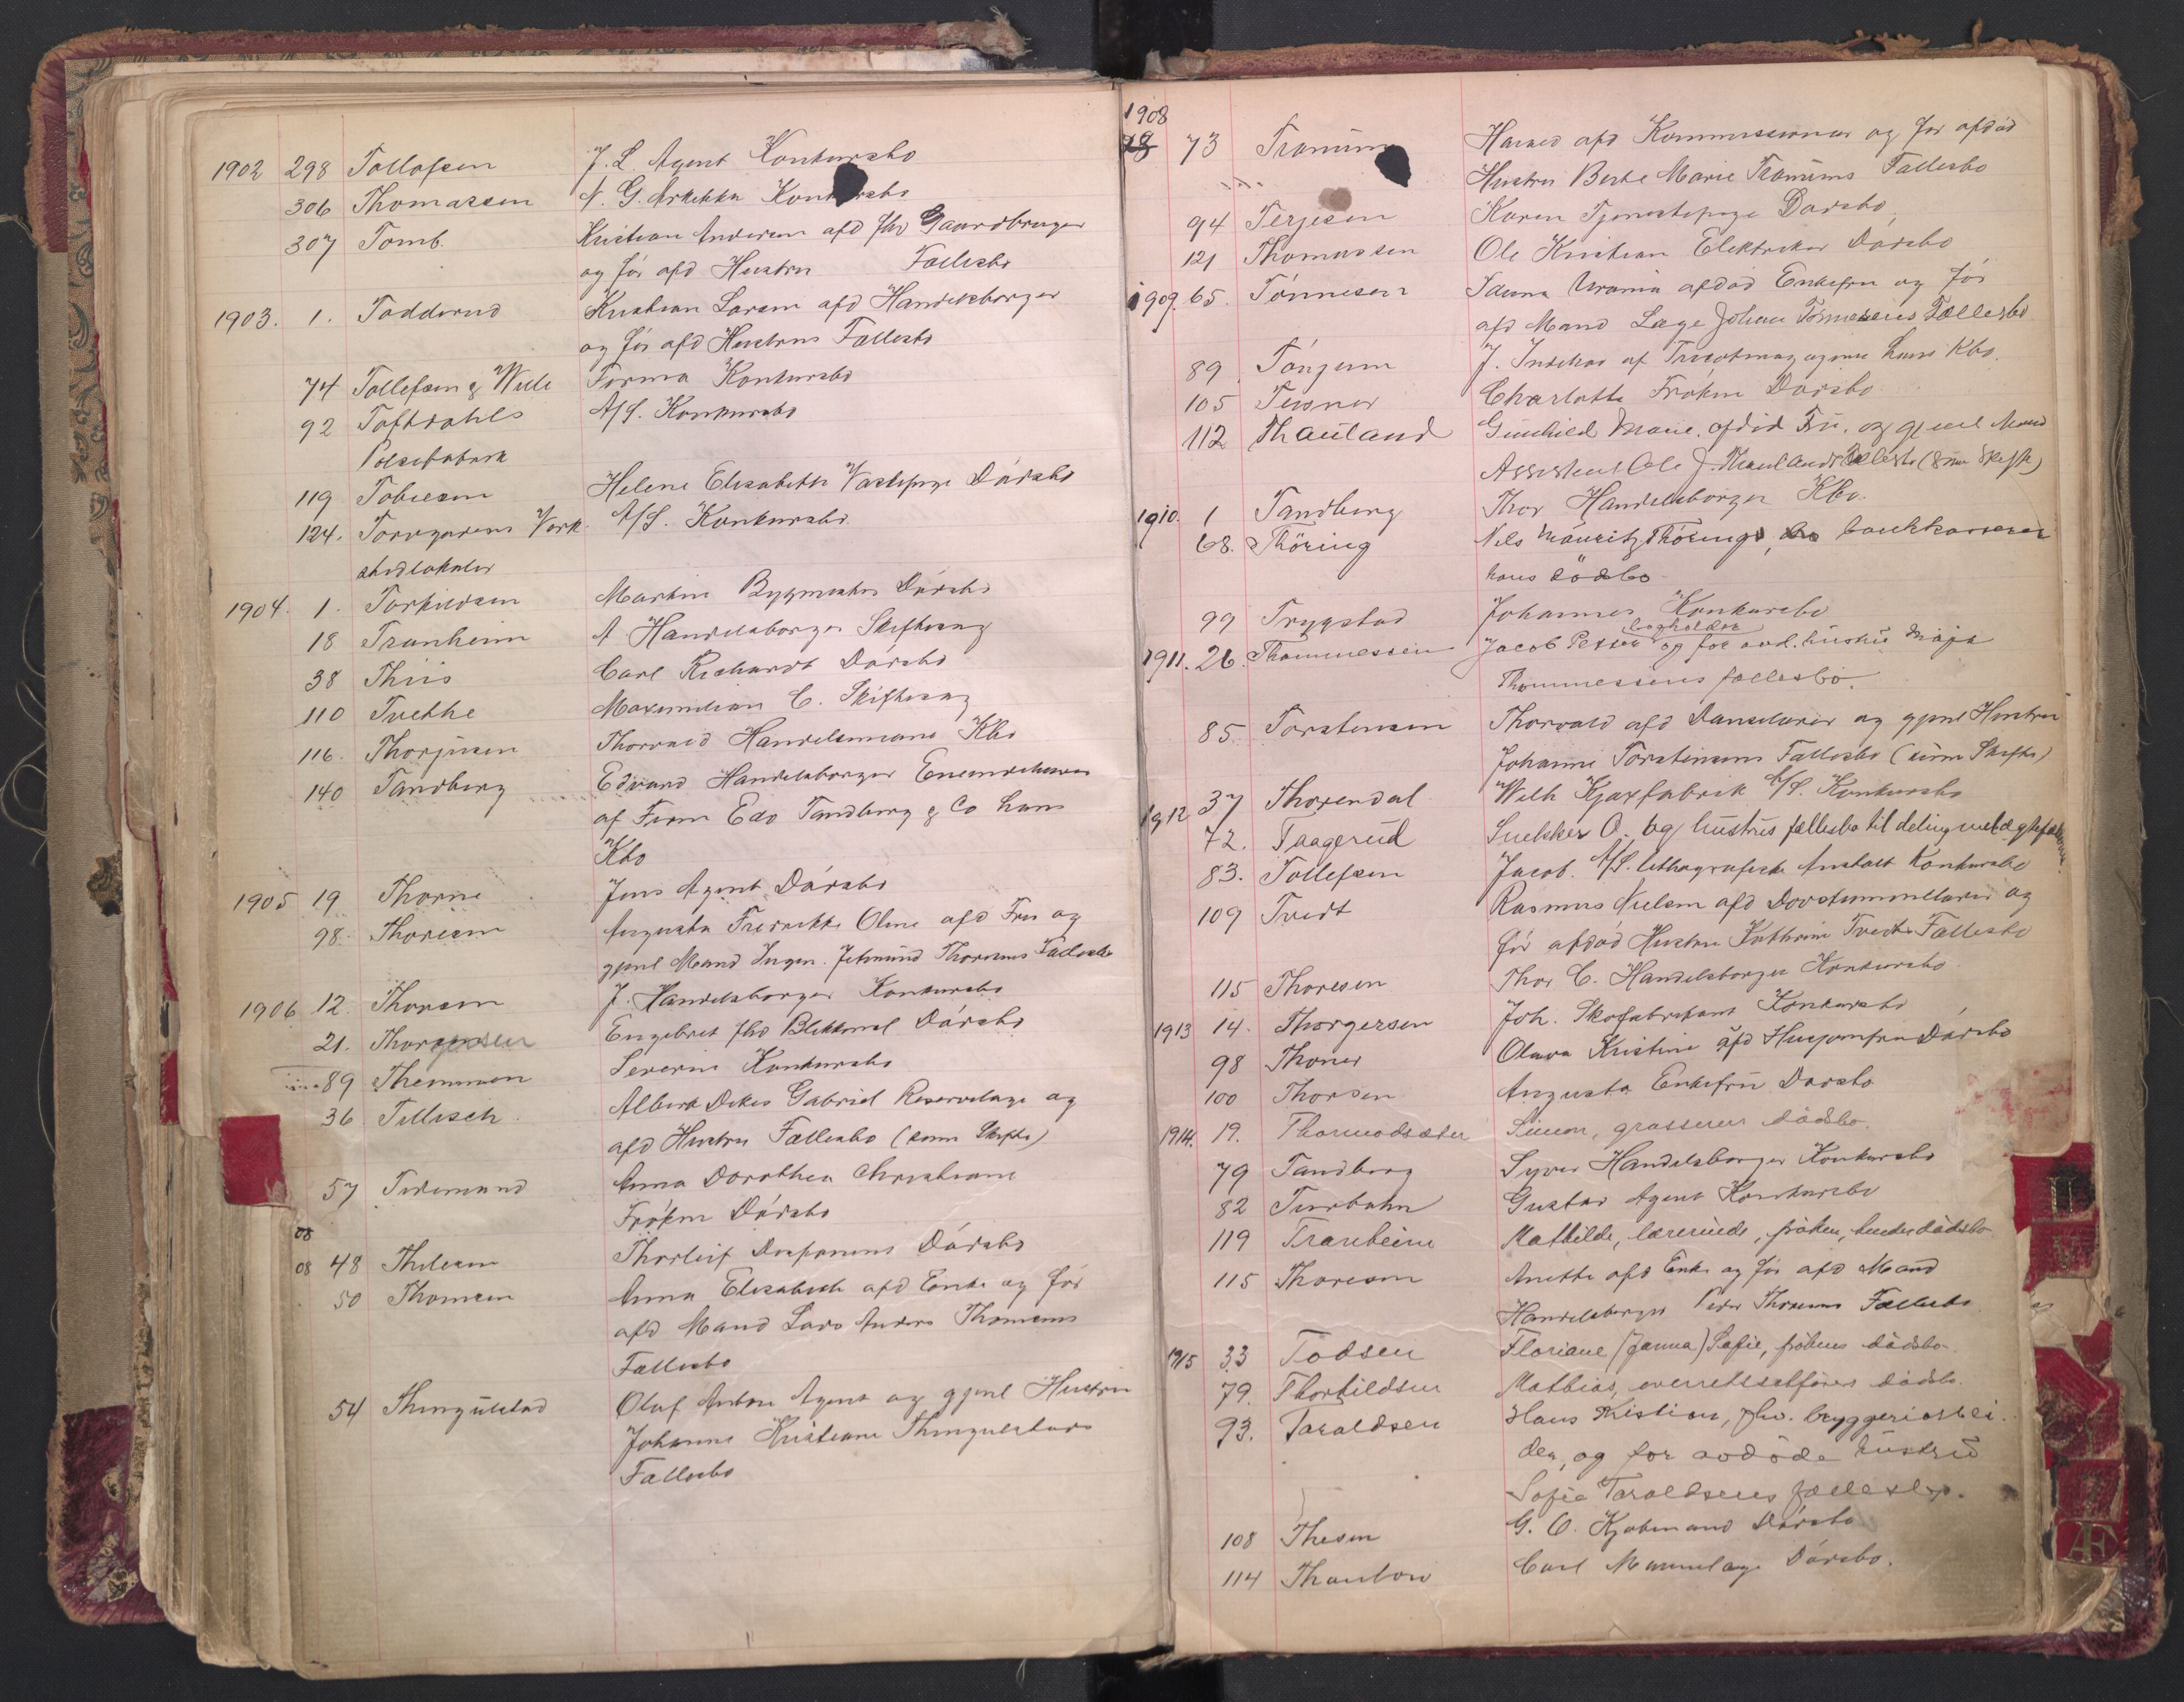 1902 298 Tollofsen J. L Agent Konkursbo
306 Thomassen N. G. Arkitekt Konkursbo
307 Tomb. Kristian Andersen afd fhv Gaardbruger
og før afd Hustru Fællesbo
1903. 1. Todderud Kristian Larsen afd Handelsborger
og før afd Hustrus Fællesbo
74 Tollefsen & Wiile Firma Konkursbo
92 Toftdahls A/S. Konkursbo
Pølsefabrik
119 Tobiesen Helene Elisabeth Vaskepige Dødsbo
124. Torvgadens Værk A/S. Konkursbo
stedlokaler
1904. 1. Torkildsen Martin Bygmester Dødsbo
18 Tranheim A Handelsborger Skiftesag
38 Thiis Carl Richardt Dødsbo
110 Tvethe Maximilian C. Skiftesag
116. Thorjusen Thorvald Handelsmand Kbo
140 Tandberg Edvard Handelsborger Eneindehaver
af Firma Edv Tandberg & Co hans
Kbo
1905 19 Thorne Jens Agent Dødsbo
98. Thoresen Augusta Fredrikke Oline afd Fru og
gjenl Mand Ingen. Jetmund Thoresens Fællesbo
1906 12. Thorsen J. Handelsborger Konkursbo
21. Thorgersen Engebret fhv Blikkensl Dødsbo
89 Themmen Severin Konkursbo
36 Tillisch Albert Ditles Gabriel Reservelæge og
afd Hustru Fællesbo (sam Skifte)
57 Tidemand Anna Dorothea Christiane
Frøken Dødsbo
08
08 48 Thilesen Thorleif Dødsbo
50 Thomsen Anna Elisabeth afd Enke og før
afd Mand Lars Anders Thomsens
Fællesbo
54 Thingulstad Oluf Anton Agent og gjenl Hustru
Johanne Kristiane Thingulstads
Fællesbo
1908
73 Tranum Harald afd Kommissionær og før afdød
Hustru Berte Marie Tranums Fællesbo
94 Terjesen Karen Tjenestepige Dødsbo
121 Thomassen Ole Kristian Elektriker Dødsbo
1909. 65. Tønnesen Idunna Urania afdød Enkefru og før
afd Mand Læge Johan Tønnesens Fællesbo
89 Tönjum J. Indehav af Tricotmagazinet hans Kbo.
105 Teisner Charlotte Frøken Dødsbo
112 Thauland Gunhild Marie, afdød Fru, og gjenl Mand
Assistent Ole J. Thaulands Fællesbo (Sam Skift)
1910. 1 Tandberg Thor Handelsborger Kbo.
68. Thöring Nils Mauritz Thörings, bankkasserer
hans dødsbo
99 Trygstad Johannes Konkursbo
bogholder
1911. 26. Thommessen Jacob Petter og for avd. hustru Maja
Thommessens fællesbo.
85. Torstensen Thorvald afd Danselærer og gjenl Hustru
Johanne Torstensens Fællesbo (sam Skifte)
1912 37 Thorendal Wilh Kjoxfabrik A/S. Konkursbo
72. Taagerud Snekker O. og hustrus fællesbo til deling
83. Tollefsen Jacob. A/S. lithografiske Anstalt Konkursbo
109 Tvedt Rasmus Nielsen afd Døvstummelærer og
før afdød Hustru Kathrine Tvedts Fællesbo
115 Thoresen Thor C. Handelsborger Konkursbo
1913 14. Thorgersen Joh. Skofabrikant Konkursbo
98 Thoner Olava Kristine afd Husjomfru Dødsbo
100 Thorsen Augusta Enkefru Dødsbo
1914. 19. Thormodsæter Simon, grosserer dødsbo.
79 Tandberg Syver Handelsborger Konkursbo
82 Turbahn Gustav Agent Konkursbo
119 Tranheim Mathilde, lærerinde, frøken, hendes dødsbo
115 Thoresen Anette afd Enke og før afd Mand
Handelsborger Peder Thoresens Fællesbo
1915 33 Todsen Floriane (Janna) Sofie, frökens dödsbo
79. Thorkildsen Mathias, overretssakförers dödsbo.
93. Taraldsen Hans Kristian, fhv. bryggeriarbei
der, og for avdøde hustru
Sofie Taraldsens fællesbo.
108 Thesen G. O. Kjøbmand Dødsbo
114 Thaulow Carl Dødsbo.